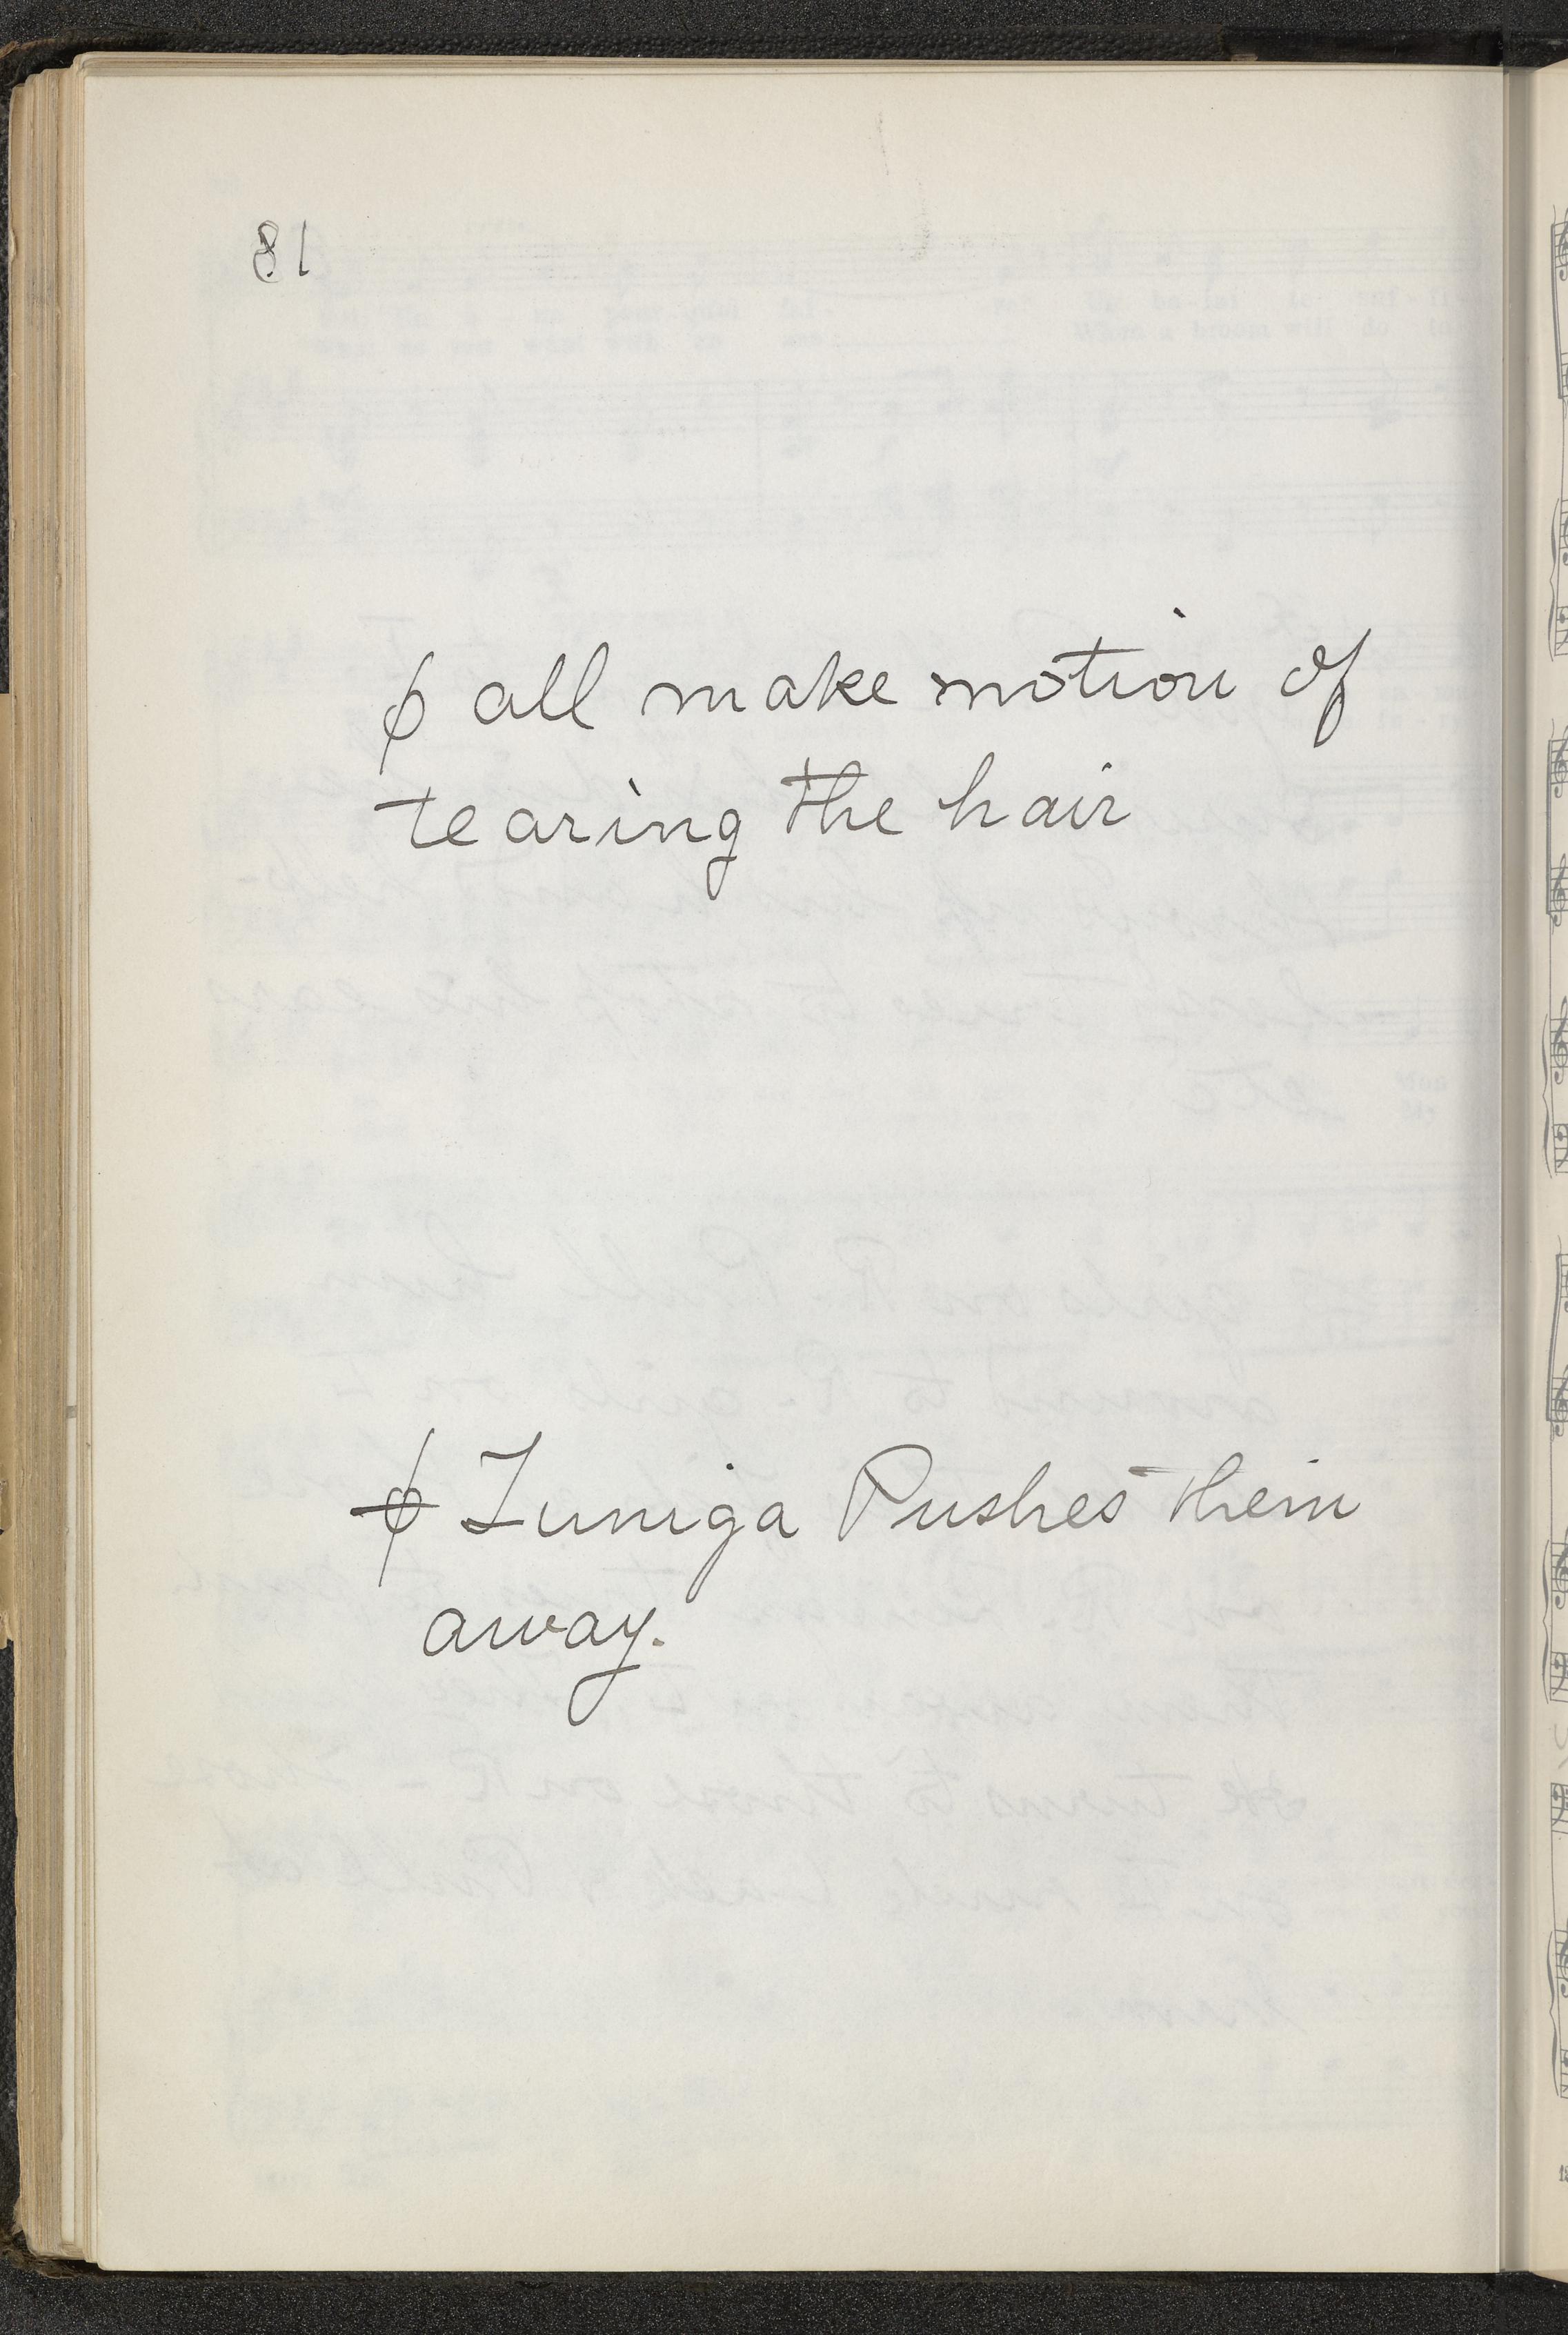 81
ϕ all make motion of
tearing the hair
ϕ Zuniga Pushes them
away.